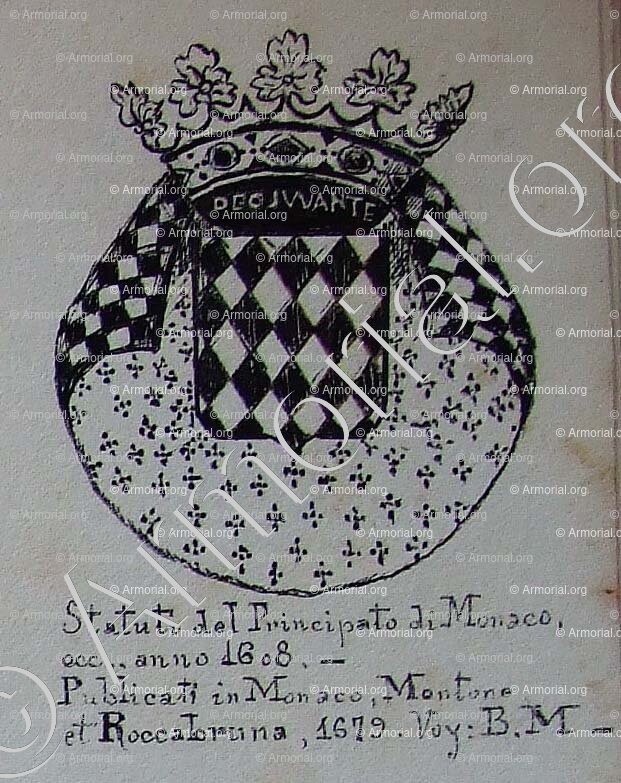 DEO JUVANTE
Statuti del Principato di Monaco,
occ., anno 1608, —
Publicati in Monaco, Montone
et Roccabruna, 1679. Voy: B. M —
© Armorial.org